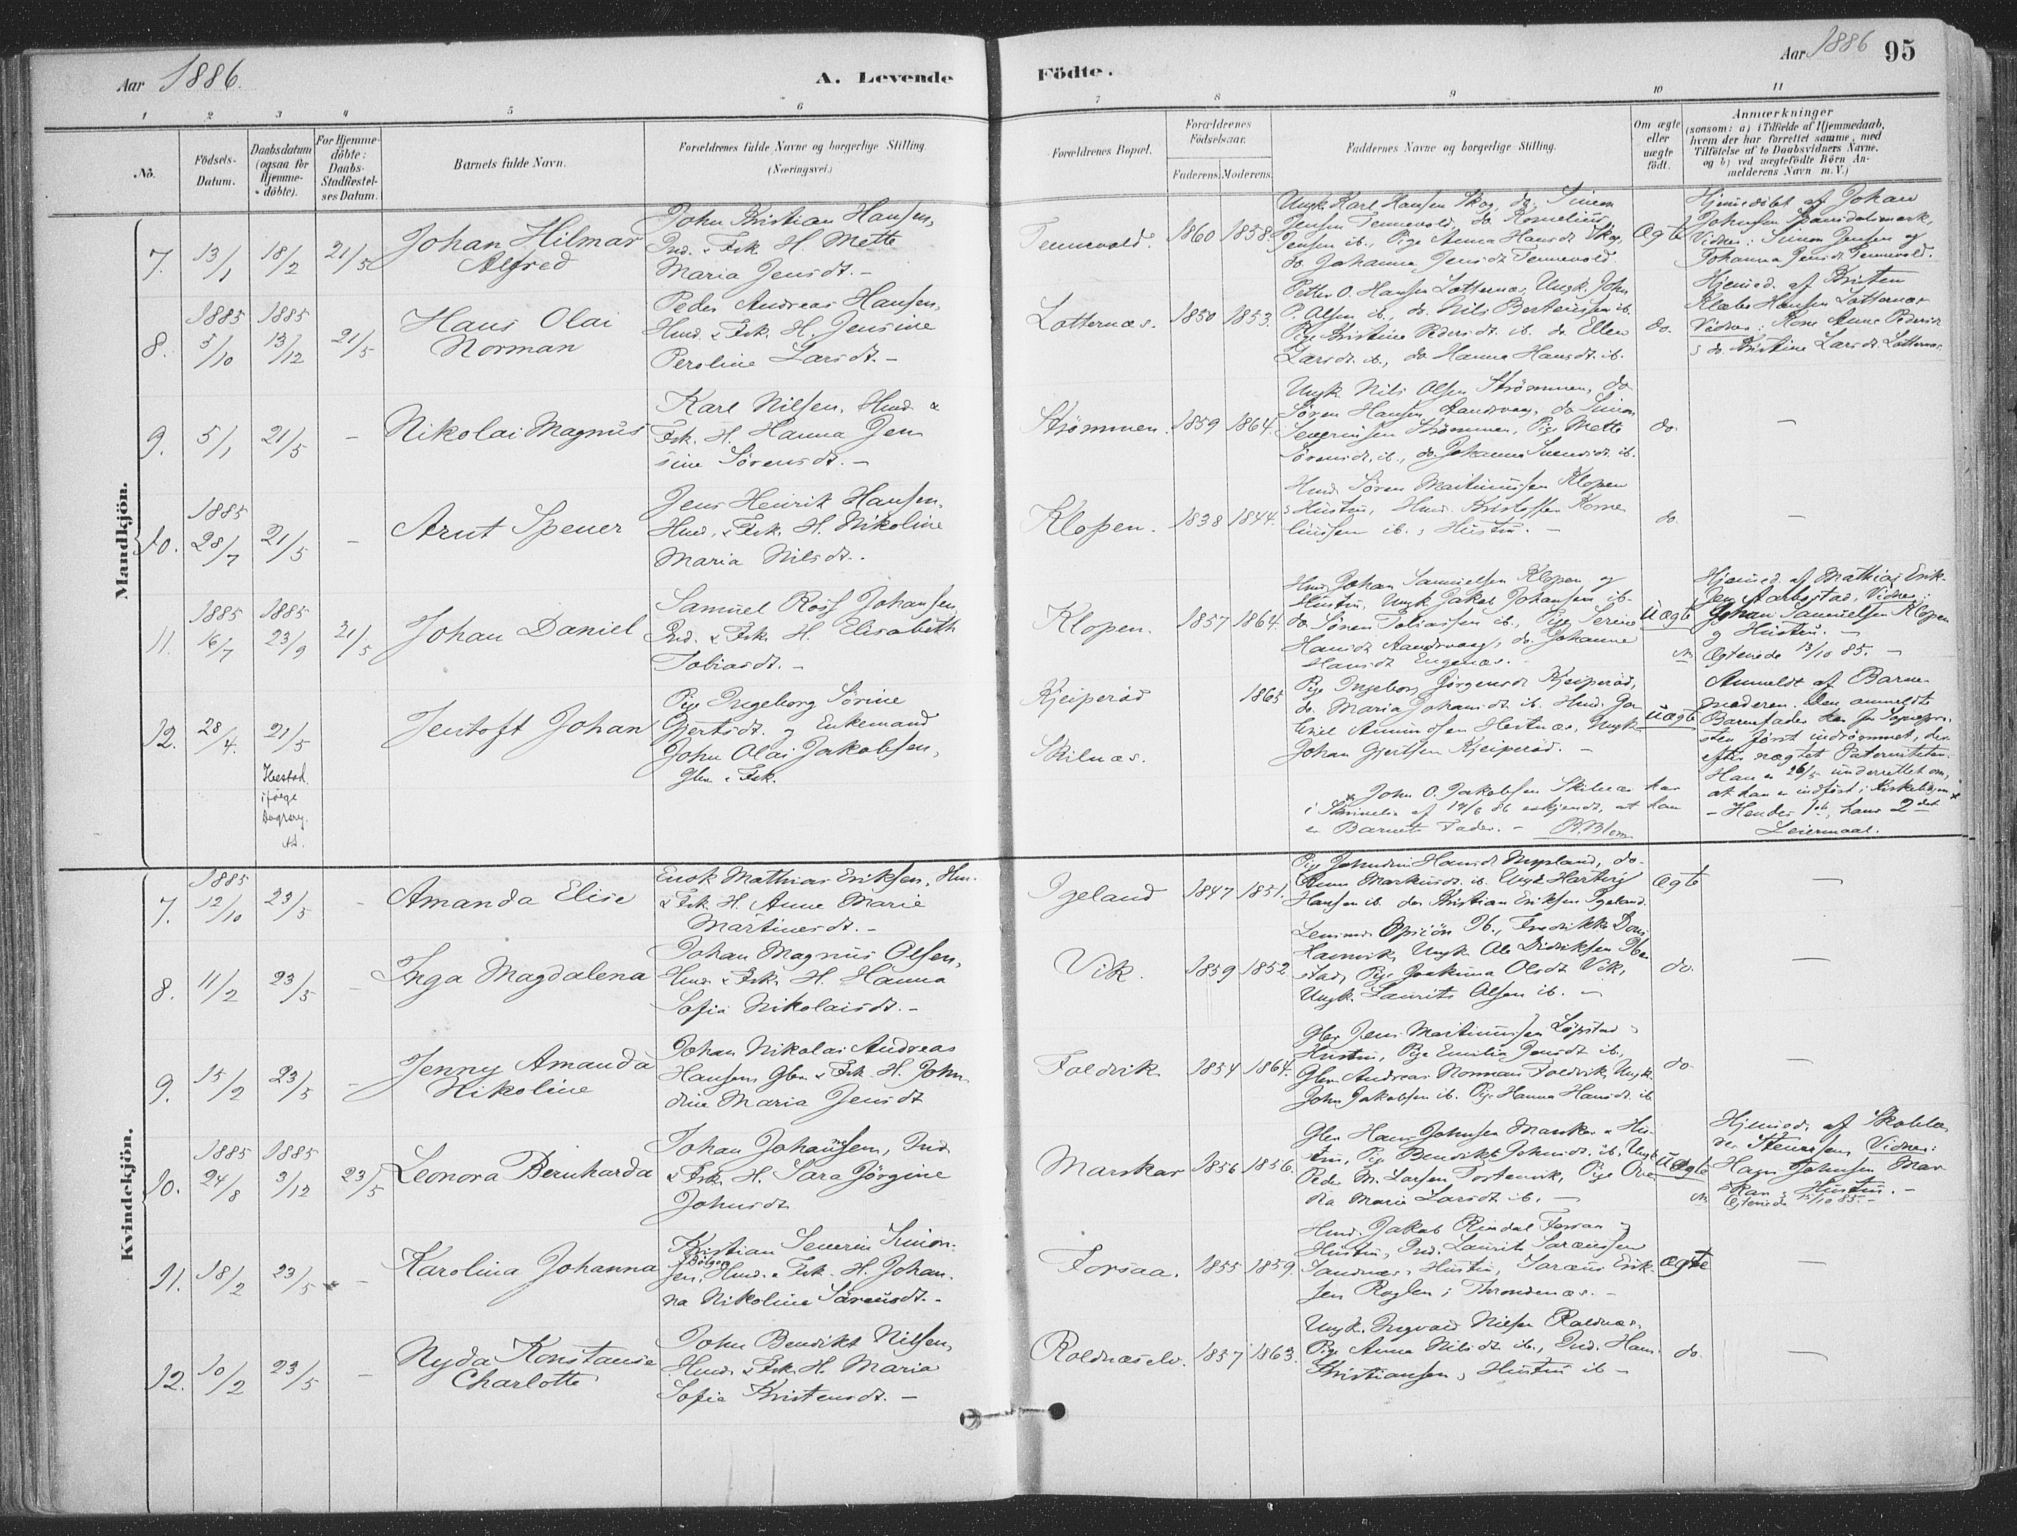 Aar 1886.
A. Levende
Födte.
Aar 1886
95
1 2 3 4 5 6 7 8 9 10 11
No.
Födsels-
Datum.
Daabsdatum
(ogsaa for
Hjemme-
döbte).
For Hjemme-
döbte:
Daabs-
Stadfæstel-
ses Datum.
Barnets fulde Navn.
Forældrenes fulde Navne og borgerlige Stilling.
(Næringsvei.)
Forældrenes Bopæl.
Forældrenes
Födselsaar.
Faderens. Moderens.
Faddernes Navne og borgerlige Stilling.
Om ægte
eller
uægte
født.
Anmærkninger
(saasom: a) i Tilfælde af Hjemmedaab,
hvem der har forrettet samme, med
Tilföielse af to Daabsvidners Navne,
og b) ved uægtefödte Börn An-
melderens Navn m. V.)
Mandkjön.
7. 13/1 18/2 21/5
Johan Hilmar
Alfred
John Kristian Hansen,
Ind. & Fsk. H. Mette
Maria Jensdt. –
Tennevold. 1860 1858.
Ungk. Karl Hansen Skog, do. Simon
Jensen Tennevold, do Kornelius
Jensen ib., Pige Anna Hansdt Skog,
do. Johanna Jensdt Tennevold
Ægte
Hjemmedöbt af Johan
Johnsen
Vidner: Simon Jensen og
Johanna Jensdt Tennevold.
8. 1885 5/10 1885 13/12 21/5
Hans Olai
Norman
Peder Andreas Hansen,
Hmd. & Fsk. H. Jensine
Peroline Larsdt. –
Lotternæs. 1850 1853.
Petter O. Hansen Lotternæs, Ungk. John
P. Olsen ib., do. Nils Berteussen ib.
Pige Kristine Pedersdt ib. do Ellen
Larsdt. ib., do Hanna Hansdt. ib.
do.
Hjemmed. af Kristen
Klæbo Hansen Lotternæs
Vidner: Kone Anne Pedersdt
& do. Kristine Larsdt. Lotternæs.
9. 5/1 21/5 –
Nikolai Magnus
Karl Nilsen, Hmd &
Fsk. H. Hanna Jen
sine Sörensdt. –
Strømmen. 1859 1864.
Ungk Nils Olsen Strømmen, do
Sören Hansen Sandsvaag, do Simon
Severinsen Strømmen, Pige Mette
Sörensdt. ib., do Johanna Svensdt. ib.
do. –
10. 1885 28/7 21/5 –
Arnt Spener
Jens Henrik Hansen
Hmd. & Fsk. H. Nikoline
Maria Nilsdt.
Klopen. 1838 1844.
Hmd Sören Martinussen Klopen
& Hustru, Hmd. Kristoffer Korne
liussen ib. & Hustru. –
do. –
11. 1885 16/7 1885 23/9 21/5
Johan Daniel
Samuel Ross Johansen,
Ind. & Fsk. H. Elisabeth
Tobiasdt. –
Klopen. 1857 1864.
Hmd Johan Samuelsen Klopen og
Hustru, Ungk Jakob Johansen ib.
do. Sören Tobiassen ib., Pige Serine
Hansdt Sandsvaag, do. Johanne
Hansdt Engenæs. –
Uægte
Hjemmed. af Mathias Erik-
sen Aarbostad, Vidner:
Johan Samuelsen Klopen
og Hustru. –
Ægteviede 13/10 85. –
12. 28/4. 21/5
Hestad
ifølge
Dagreg.
Jentoft Johan
Pige Ingeborg Sörine
Gjertsdt. og Enkemand
John Olai Jakobsen,
Gbr. & Fsk.
Kjeiperöd
Skilnæs.
1865
Pige Ingeborg Jörgensdt Kjeiperöd,
do. Maria Johansdt ib. Hmd. Ga-
briel Amundsen Hestnæs, Ungk.
Johan Gjertsen Kjeiperöd. –
Uægte
Anmeldt af Barne-
moderen. Den anmeldte
Barnefader har for Sognepræ-
sten först indrömmet, der-
efter nægtet Paterniteten.
Han er 26/5 underrettet om,
at han er indfört i Kirkebogen ×
– Hendes 1ste, hans 2det
Leiermaal.
× John O. Jakobsen Skilnæs har
i Skrivelse af 14/6 86 erkjendt, at han
er Barnets Fader. – R. Blom
Kvindekjön.
7. 1885 12/10 23/5 –
Amanda Elise
Enok Mathias Eriksen, Hm.
& Fsk. H. Anne Marie
Martinesdt. –
Igeland 1847 1851.
Pige Johndine Hansdt Nypland, do.
Anna Markusdt. ib. Ungk Hartvig
Hansen ib. do Kristian Eriksen Igeland
Ægte –
8. 11/2 23/5 –
Inga Magdalena
Johan Magnus Olsen,
Hmd. & Fsk. H. Hanna
Sofia Nikolaisdt. –
Vik. 1859 1852
Hamnvik, Ungk Ole Didriksen
Pige Joakima Olsdt Vik,
Ungk. Laurits Olsen ib. –
do. –
9. 15/2 23/5 –
Jenny Amanda
Nikoline
Johan Nikolai Andreas
Hansen Gbr. & Fsk. H. John
dine Maria Jensdt
Foldvik 1854 1864.
Gbr. Jens Martinussen Løpstad &
Hustru, Pige Emilie Jensdt ib.,
Gbr. Andreas Norman Foldvik, Ungk.
John Jakobsen ib. Pige Hanna Hansdt. ib
do –
10. 1885 24/8 1885 3/12 23/5
Leonora Bernharda
Johan Johannessen, Ind
& Fsk. H. Sara Jörgine
Johnsdt
Marskar 1856 1856.
Gbr. Hans Johnsen Marskar & Hu-
stru, Pige Benedikte Johnsdt. ib. Ungk
Peder M. Larsen Fostervik, Pige Ove
dia Marie Larsdt ib. –
Uægte
Hjemmed. af Skolelæ
rer Stenersen Vidner:
Hans Johnsen Mar
skar & Hustru. –
Ægteviede 13/10 85. –
11. 18/2 23/5 –
Karolina Johanna
Kristian Severin Simon-
sen, Hmd. & Fsk. H. Johan-
na Nikoline Sörensdt. –
Forsaa. 1855 1859.
Hmd. Jakob Rindal Forsaa og
Hustru, Ind. Laurits Saræussen
Sandnæs & Hustru, Saræus Erik-
sen Roglen i Throndenæs. –
Ægte –
12. 10/2 23/5 –
Nyda Konstanse
Charlotte
John Bendikt Nilsen,
Hmd. & Fsk. H. Maria
Sofia Kristensdt. –
Roldnæselv. 1857 1863.
Ungk. Ingvald Nilsen Roldnæs.
Pige Anna Nilsdt ib., Ind. Hans
Kristiansen & Hustru ib –
do. –